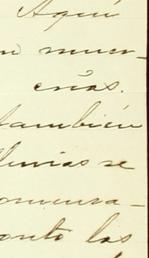 Aquí
n muer-
cías.
también
lluvias se
omensa-
onto los